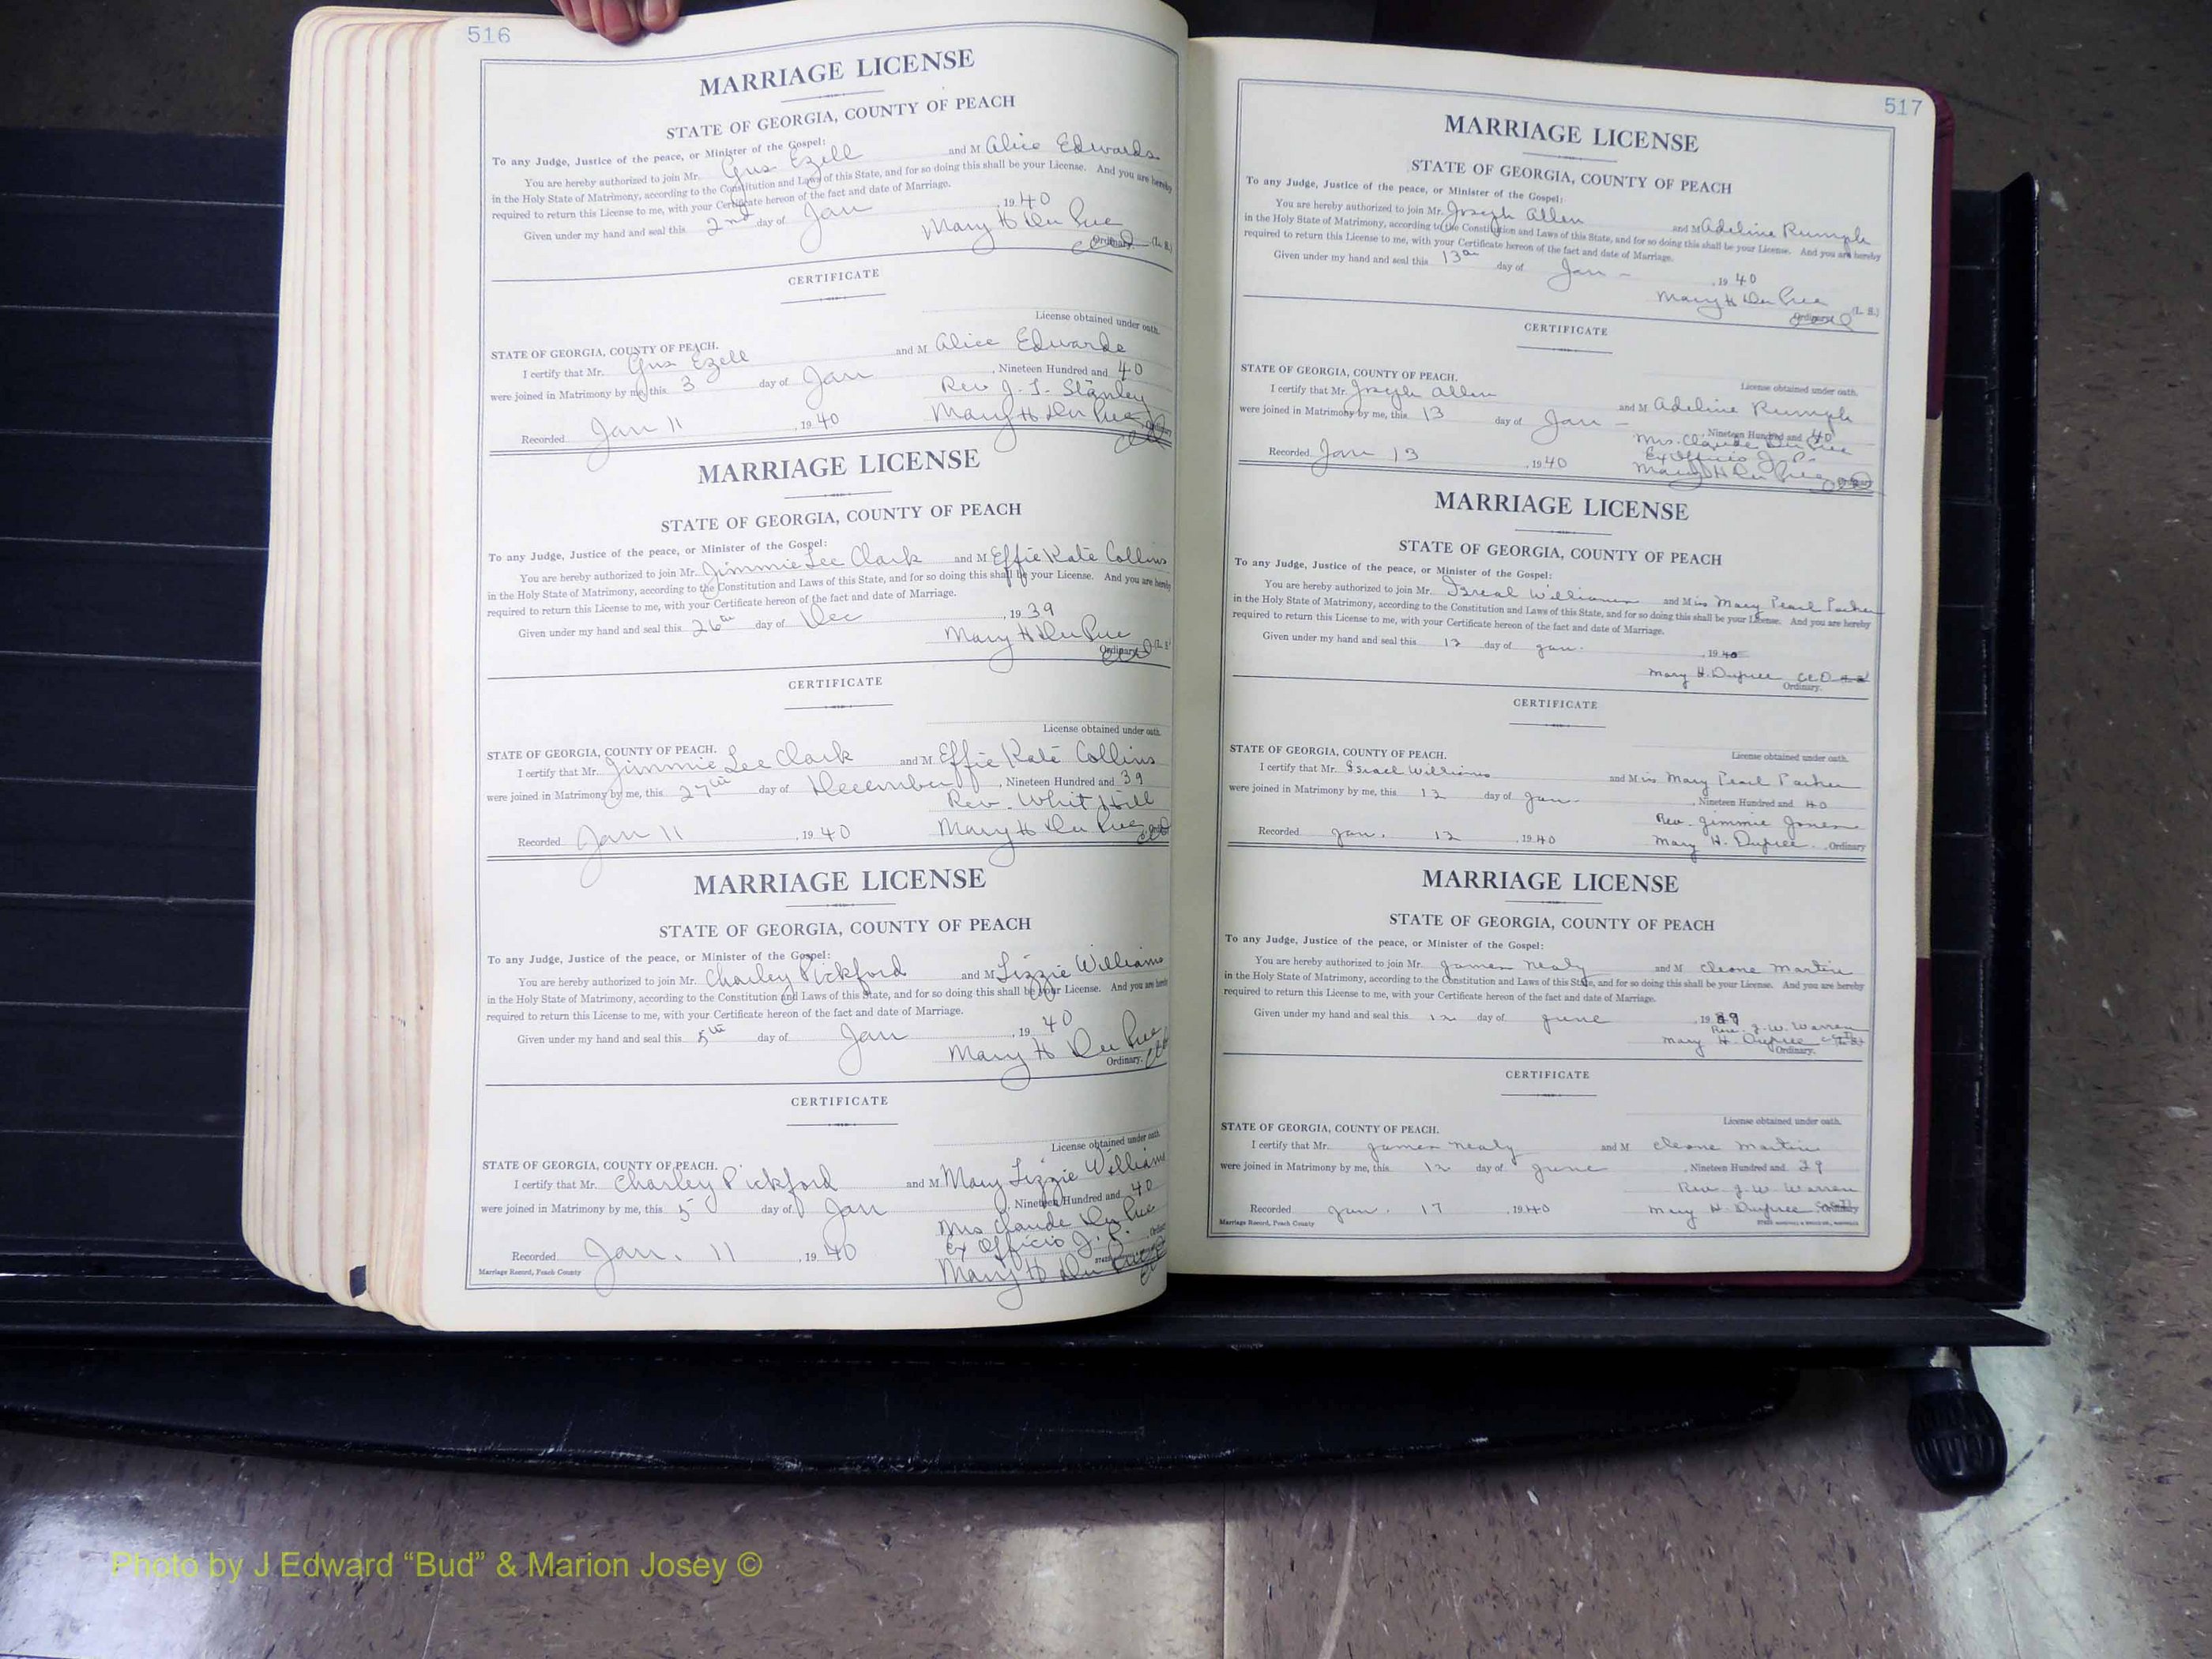 516
MARRIAGE LICENSE
STATE OF GEORGIA, COUNTY OF PEACH
To any Judge, Justice of the peace, or Minister of the Gospel:
You are hereby authorized to join Mr. Gus Ezell and M Alice Edwards
in the Holy State of Matrimony, according to the Constitution and Laws of this State, and for so doing this shall be your License. And you are hereby
required to return this License to me, with your Certificate hereon of the fact and date of Marriage.
Given under my hand and seal this 2nd day of Jan , 1940
Mary H DuPree
Ordinary. (L. S.)
CERTIFICATE
License obtained under oath.
STATE OF GEORGIA, COUNTY OF PEACH.
I certify that Mr. Gus Ezell and M Alice Edwards
were joined in Matrimony by me, this 3 day of Jan , Nineteen Hundred and 40
Rev J. T. Stanley
Recorded Jan 11 , 1940 Mary H DuPree Ordinary
MARRIAGE LICENSE
STATE OF GEORGIA, COUNTY OF PEACH
To any Judge, Justice of the peace, or Minister of the Gospel:
You are hereby authorized to join Mr. Jimmie Lee Clark and M Effie Kate Collins
in the Holy State of Matrimony, according to the Constitution and Laws of this State, and for so doing this shall be your License. And you are hereby
required to return this License to me, with your Certificate hereon of the fact and date of Marriage.
Given under my hand and seal this 26th day of Dec , 1939
Mary H DuPree
Ordinary (L. S.
CERTIFICATE
License obtained under oath.
STATE OF GEORGIA, COUNTY OF PEACH.
I certify that Mr. Jimmie Lee Clark and M Effie Kate Collins
were joined in Matrimony by me, this 27th day of December , Nineteen Hundred and 39
Rev. Whit Hill
Recorded Jan 11 , 1940 Mary H DuPree
MARRIAGE LICENSE
STATE OF GEORGIA, COUNTY OF PEACH
To any Judge, Justice of the peace, or Minister of the Gospel:
You are hereby authorized to join Mr. Charley Pickford and M Lizzie Williams
in the Holy State of Matrimony, according to the Constitution and Laws of this State, and for so doing this shall be your License. And you are hereby
required to return this License to me, with your Certificate hereon of the fact and date of Marriage.
Given under my hand and seal this 5th day of Jan , 1940
Mary H DuPree
Ordinary.
CERTIFICATE
License obtained under oath.
STATE OF GEORGIA, COUNTY OF PEACH.
I certify that Mr. Charley Pickford and M Mary Lizzie Williams
were joined in Matrimony by me, this 5 day of Jan , Nineteen Hundred and 40
Mrs Claude DuPree
Ex Officio J. P.
Recorded Jan. 11 , 1940 Mary H DuPree
Marriage Record, Peach County
517
MARRIAGE LICENSE
STATE OF GEORGIA, COUNTY OF PEACH
To any Judge, Justice of the peace, or Minister of the Gospel:
You are hereby authorized to join Mr. Joseph Allen and M Adeline Rumph
in the Holy State of Matrimony, according to the Constitution and Laws of this State, and for so doing this shall be your License. And you are hereby
required to return this License to me, with your Certificate hereon of the fact and date of Marriage.
Given under my hand and seal this 13th day of Jan - , 1940
Mary H DuPree
Ordinary (L. S.)
CERTIFICATE
License obtained under oath.
STATE OF GEORGIA, COUNTY OF PEACH.
I certify that Mr. Joseph Allen and M Adeline Rumph
were joined in Matrimony by me, this 13 day of Jan - , Nineteen Hundred and 40
Mrs. Claude DuPree
Ex Officio J. P.
Recorded Jan 13 , 1940 Mary H DuPree
MARRIAGE LICENSE
STATE OF GEORGIA, COUNTY OF PEACH
To any Judge, Justice of the peace, or Minister of the Gospel:
You are hereby authorized to join Mr. Isreal Williams and Miss Mary Pearl Parker
in the Holy State of Matrimony, according to the Constitution and Laws of this State, and for so doing this shall be your License. And you are hereby
required to return this License to me, with your Certificate hereon of the fact and date of Marriage.
Given under my hand and seal this 12 day of Jan. , 1940
Mary H. Dupree CCO
Ordinary.
CERTIFICATE
License obtained under oath.
STATE OF GEORGIA, COUNTY OF PEACH.
I certify that Mr. Israel Williams and Miss Mary Pearl Parker
were joined in Matrimony by me, this 12 day of Jan. , Nineteen Hundred and 40
Rev. Jimmie Jones
Recorded Jan. 12 , 1940 Mary H. Dupree , Ordinary
MARRIAGE LICENSE
STATE OF GEORGIA, COUNTY OF PEACH
To any Judge, Justice of the peace, or Minister of the Gospel:
You are hereby authorized to join Mr. James Nealy and M Cleone Martin
in the Holy State of Matrimony, according to the Constitution and Laws of this State, and for so doing this shall be your License. And you are hereby
required to return this License to me, with your Certificate hereon of the fact and date of Marriage.
Given under my hand and seal this 12 day of June , 1939
Rev. J. W. Warren
Mary H. Dupree
Ordinary.
CERTIFICATE
License obtained under oath.
STATE OF GEORGIA, COUNTY OF PEACH.
I certify that Mr. James Nealy and M Cleone Martin
were joined in Matrimony by me, this 12 day of June , Nineteen Hundred and 39
Rev J. W. Warren
Recorded Jan. 17 , 1940 Mary H. Dupree
Marriage Record, Peach County
Photo by J Edward “Bud” & Marion Josey ©